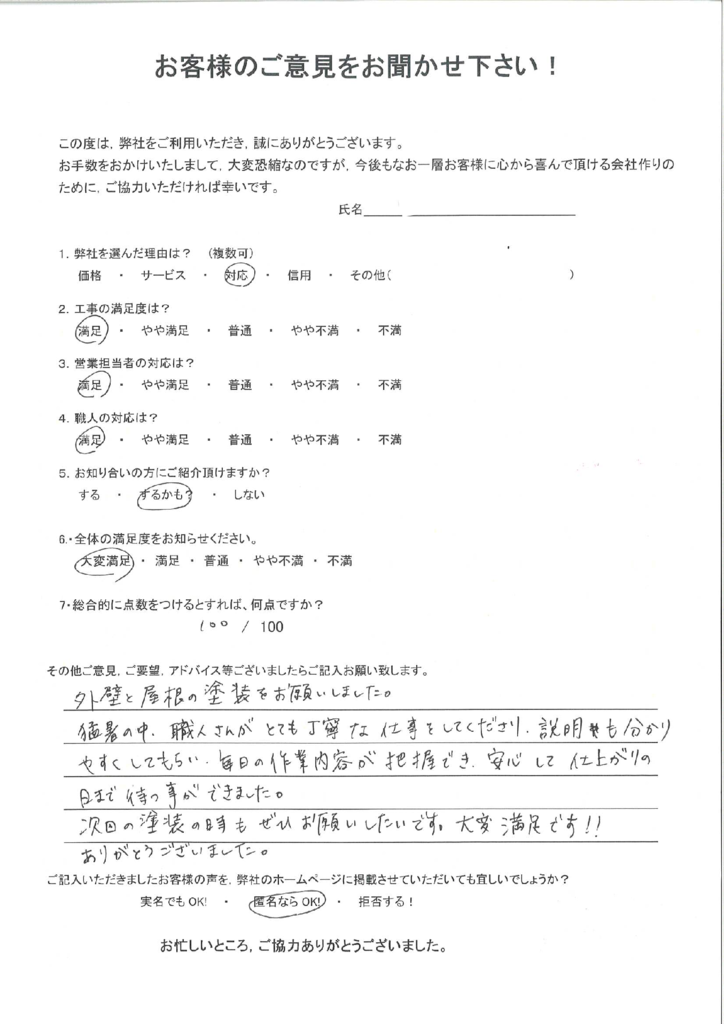 お客様のご意見をお聞かせ下さい！
この度は、弊社をご利用いただき、誠にありがとうございます。
お手数をおかけいたしまして、大変恐縮なのですが、今後もなお一層お客様に心から喜んで頂ける会社作りの
ために、ご協力いただければ幸いです。
氏名
1. 弊社を選んだ理由は？ （複数可）
価格 ・ サービス ・ 対応 ・ 信用 ・ その他（ ）
2. 工事の満足度は？
満足 ・ やや満足 ・ 普通 ・ やや不満 ・ 不満
3. 営業担当者の対応は？
満足 ・ やや満足 ・ 普通 ・ やや不満 ・ 不満
4. 職人の対応は？
満足 ・ やや満足 ・ 普通 ・ やや不満 ・ 不満
5. お知り合いの方にご紹介頂けますか？
する ・ するかも？ ・ しない
6.・全体の満足度をお知らせください。
大変満足 ・ 満足 ・ 普通 ・ やや不満 ・ 不満
7・総合的に点数をつけるとすれば、何点ですか？
100 / 100
その他ご意見、ご要望、アドバイス等ございましたらご記入お願い致します。
外壁と屋根の塗装をお願いしました。
猛暑の中、職人さんがとても丁寧な仕事をしてくださり、説明も分かり
やすくしてもらい、毎日の作業内容が把握でき、安心して仕上がりの
日まで待つ事ができました。
次回の塗装の時もぜひお願いしたいです。大変満足です!!
ありがとうございました。
ご記入いただきましたお客様の声を、弊社のホームページに掲載させていただいても宜しいでしょうか？
実名でもOK! ・ 匿名ならOK! ・ 拒否する！
お忙しいところ、ご協力ありがとうございました。